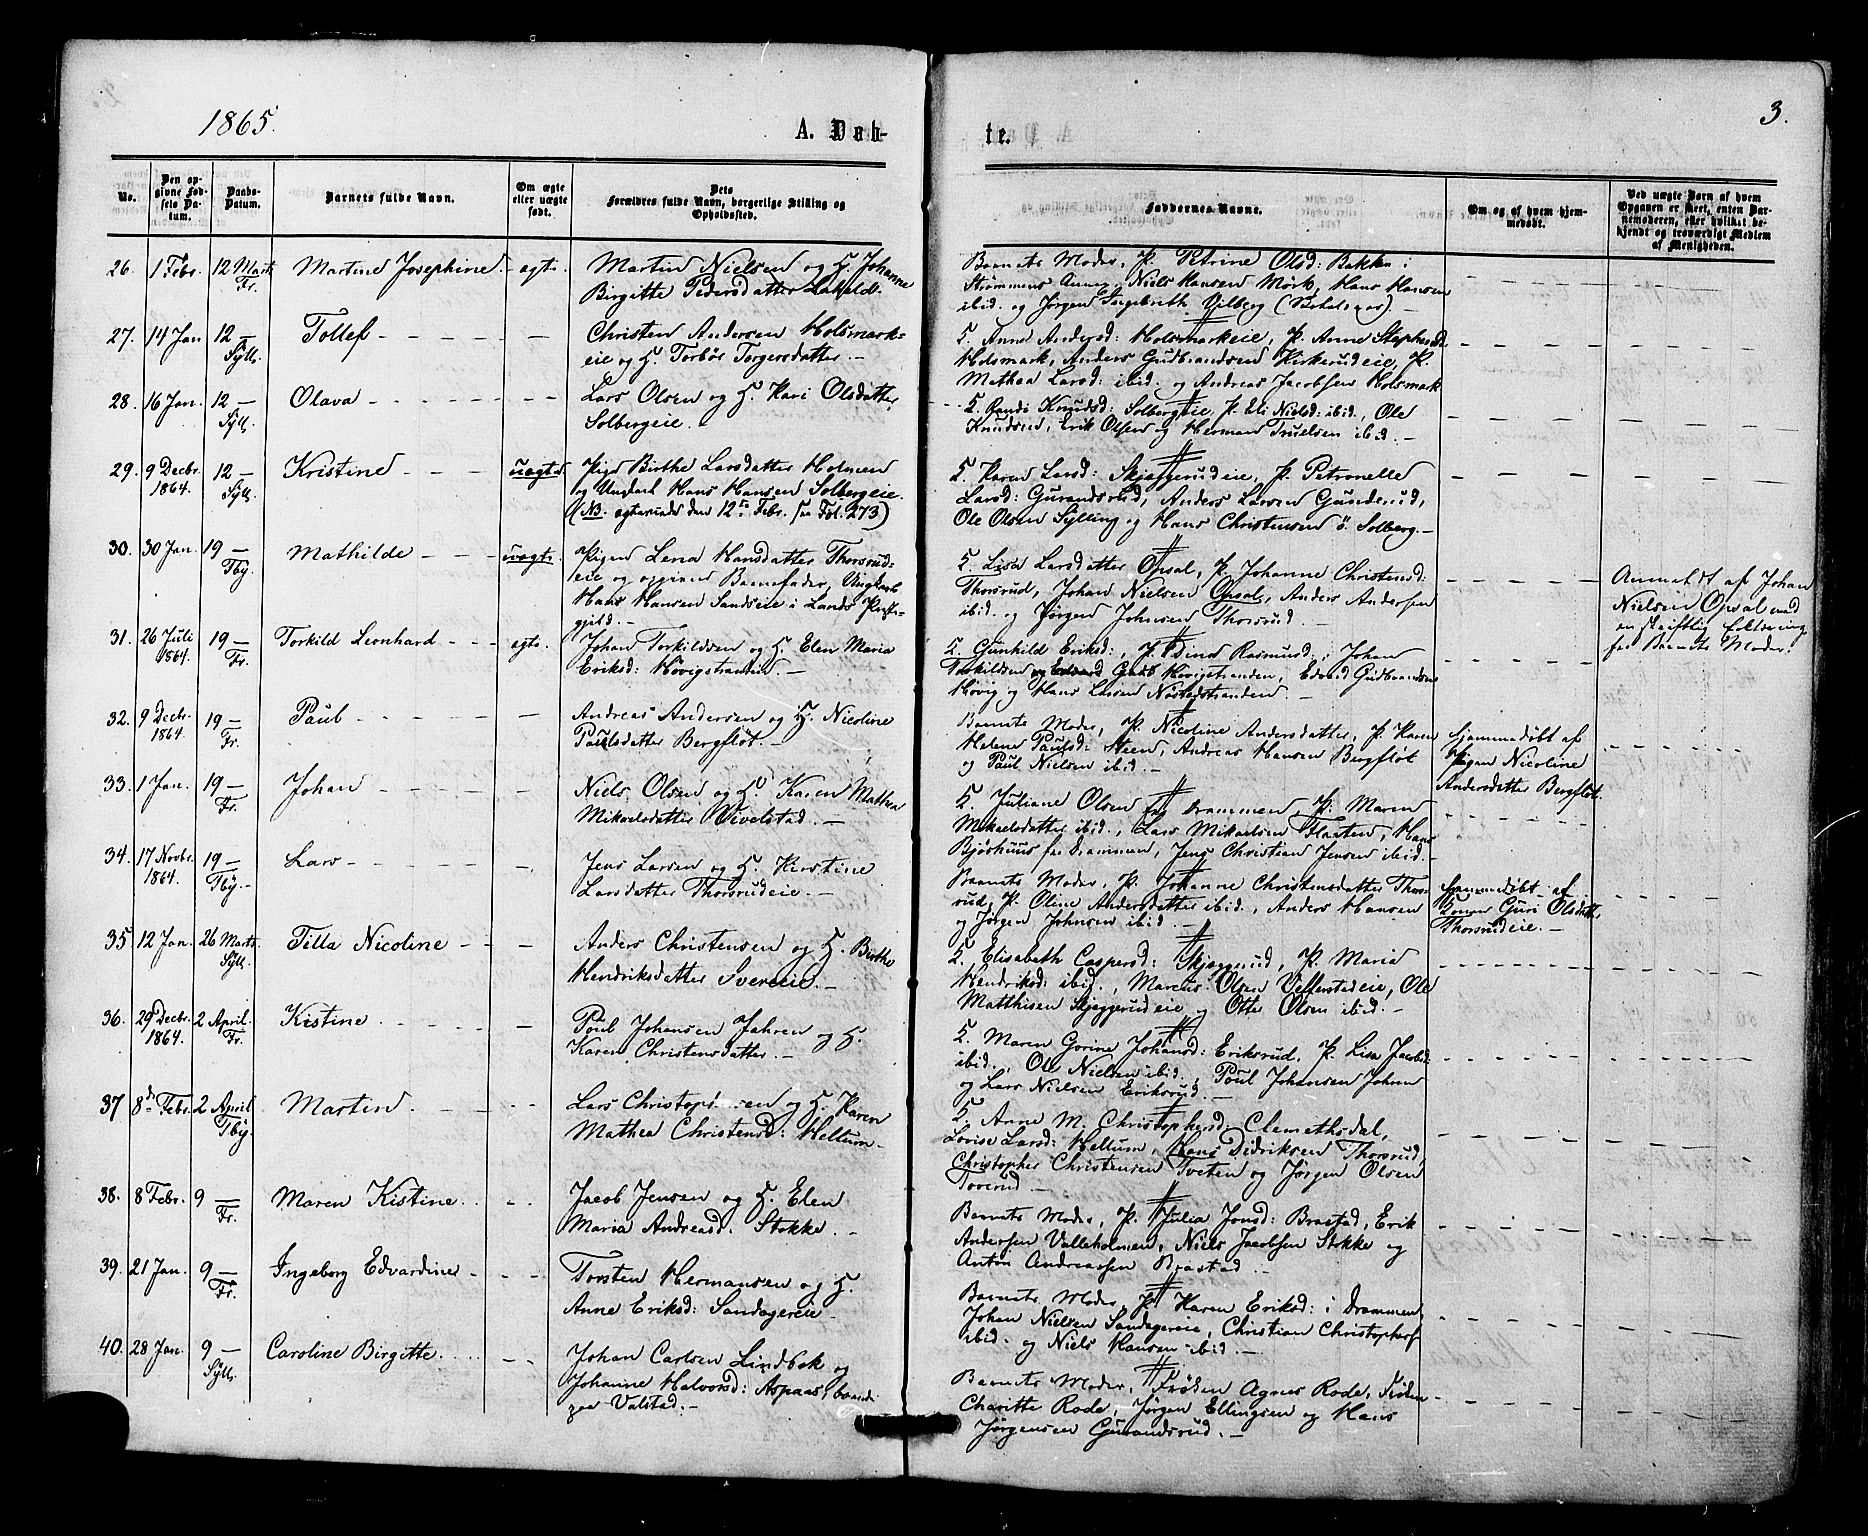 1865.
A. Døb-
te.
3.
No.
Den op-
givne Fød-
sels Da-
tum.
Daabs-
Datum.
Barnets fulde Navn.
Om ægte
eller uægte
født.
Dets
Forældres fulde Navn, borgerlige Stilling og
Opholdssted.
Faddernes Navne.
Om og af hvem hjem-
medøbt.
Ved uægte Børn af hvem
Opgaven er skeet, enten Bar-
nemoderen, eller hvilket be-
kjendt og troværdigt Medlem
af Menigheden.
26. 1 Febr. 12 Marts Martine Josephine. ægte Martin Nielsen og H. Johanne
Fr. Birgitte Pedersdatter
Barnets Moder, P. Petrine Olsd: Bakke i
Strømmens Annex, Niels Hansen Mörk, Hans Hansen
ibid. og Jørgen Ingebreth Vilberg
27. 14 Jan 12 — Tollef — — Christen Andersen Holsmark-
Sÿll. eie og H. Torbör Torgersdatter. —
K. Anne Andersd: Holsmarkeie, P. Anne Stephensd
Holsmark, Anders Gudbrandsen Kirkerudeie, P.
Mathea Larsd: ibid. og Andreas Jacobsen Holsmark
28. 16 Jan. 12 — Olava — — Lars Olsen og H. Kari Olsdatter
Sÿll. Solbergeie. —
K. Randi Knudsd: Solbergeie, P. Eli Nielsd: ibid., Ole
Knudsen, Erik Olsen og Herman Truelsen ibid. —
29. 9 Decbr. 12 — Kristine — — uægte Pige Birthe Larsdatter Holmen
1864. Sÿll. og Ungkarl Hans Hansen Solbergeie.
(NB. ægteviede den 12te Febr. see Fol. 273)
K. Karen Larsd: Skjæggerudeie, P. Petronelle
Larsd: Gurandsrud, Anders Larsen Gunderud,
Ole Olsen Sylling og Hans Christensen ö. Solberg. —
30. 30 Jan. 19 — Mathilde — — uægte. Pigen Lena Hansdatter Thorsrud-
Tbÿ. eie og opgiven Barnefader, Ungkarl
Hans Hansen Sandseie i Lands Præste-
gjeld. —
K. Lisa Larsdatter Opsal, P. Johanne Christensd:
Thorsrud, Johan Nielsen Opsal, Anders Andersen
ibid. og Jørgen Johnsen Thorsrud. —
Anmeldt af Johan
Nielsen Opsal med
en skriftlig Erklæring
fra Barnets Moder.
31. 26 Juli 19 — Torkild Leonhard — — ægte. Johan Torkildsen og H. Elen Maria
1864. Fr. Eriksd: Hövigstranden. —
K. Gunhild Eriksd:, P. Dina Rasmusd:, Johan
Torkildsen og Edvard Gudb Hövigstranden, Edvard Gudbrandsen
Hövig og Hans Larsen Nöstedstranden. —
32. 9 Decbr. 19 — Paul — — Andreas Andersen og H. Nicoline
1864. Fr. Paulsdatter Bergflöt. —
Barnets Moder, P. Nicoline Andersdatter, P. Karen
Helene Paulsd: Steen, Andreas Hansen Bergflöt
og Paul Nielsen ibid. —
Hjemmedöbt af
Pigen Nicoline
Andersdatter Bergflöt.
33. 1 Jan. 19 — Johan — — Niels Olsen og H. Karen Mathea
Fr. Mikaelsdatter Vivelstad. —
K. Juliane Olsen fra Drammen, P. Maren
Mikaelsdatter ibid., Lars Mikaelsen Flaaten, Hans
Bjöshuus fra Drammen, Jens Christian Jensen ibid. —
34. 17 Novbr. 19 — Lars — — Jens Larsen og H. Kirstine
1864. Tbÿ. Larsdatter Thorsrudeie. —
Barnets Moder, P. Johanne Christensdatter Thors-
rud, P. Oline Andersdatter ibid., Anders Hansen
og Jørgen Johnsen ibid. —
Hjemmedöbt af
Konen Guri Olsdatter
Thorsrudeie. —
35. 12 Jan. 26 Marts Tilla Nicoline — — Anders Christensen og H. Birthe
Sÿll. Hendriksdatter Svereie. —
K. Elisabeth Caspersd: Skjæggerud, P. Maria
Hendriksd: ibid., Marcus Olsen Vefferstadeie, Ole
Matthisen Skjæggerudeie og Otter Olsen ibid. —
36. 29 Decbr. 2 April. Kistine — — Poul Johansen Jahren og H.
1864. Fr. Karen Christensdatter. —
K. Maren Gorine Johansd: Eriksrud, P. Lisa Jacobsd:
ibid., Ole Nielsen ibid., Poul Johansen Jahren
og Lars Nielsen Eriksrud. —
37 8de Febr. 2 April Martin — — Lars Christophersen og H. Karen
Tbÿ. Mathea Christensd: Hellum —
K. Anne M. Christophersd: Clemethsdal,
Lovise Larsd: Hellum, Hans Didriksen Thorsrud,
Christopher Christensen Tveten og Jørgen Olsen
Toverud —
38. 8 Febr. 9 — Maren Kistine — — Jacob Jensen og H. Elen
Fr. Maria Andreasd. Stokke. —
Barnets Moder, P. Julia Jonsd: Brastad, Erik
Andersen Valleholmen, Niels Jacobsen Stokke og
Anton Andreassen Brastad. —
39. 21 Jan. 9 — Ingeborg Edvardine — — Torsten Hermansen og H.
Fr. Anne Eriksd: Sandagereie
Barnets Moder, P. Karen Eriksd: i Drammen
Johan Nielsen Sandagereie, Christian Christophers
ibid. og Niels Hansen ibid. —
40. 28 Jan. 9 — Caroline Birgitte — — Johan Carlsen Lindbek og
Sÿll. Johanne Halvorsd: Aspaas, boende
paa Valstad. —
Barnets Moder, Frøken Agnes Rode, Frøken
Charitte Rode, Jørgen Ellingsen og Hans
Jørgensen Gurandsrud. —